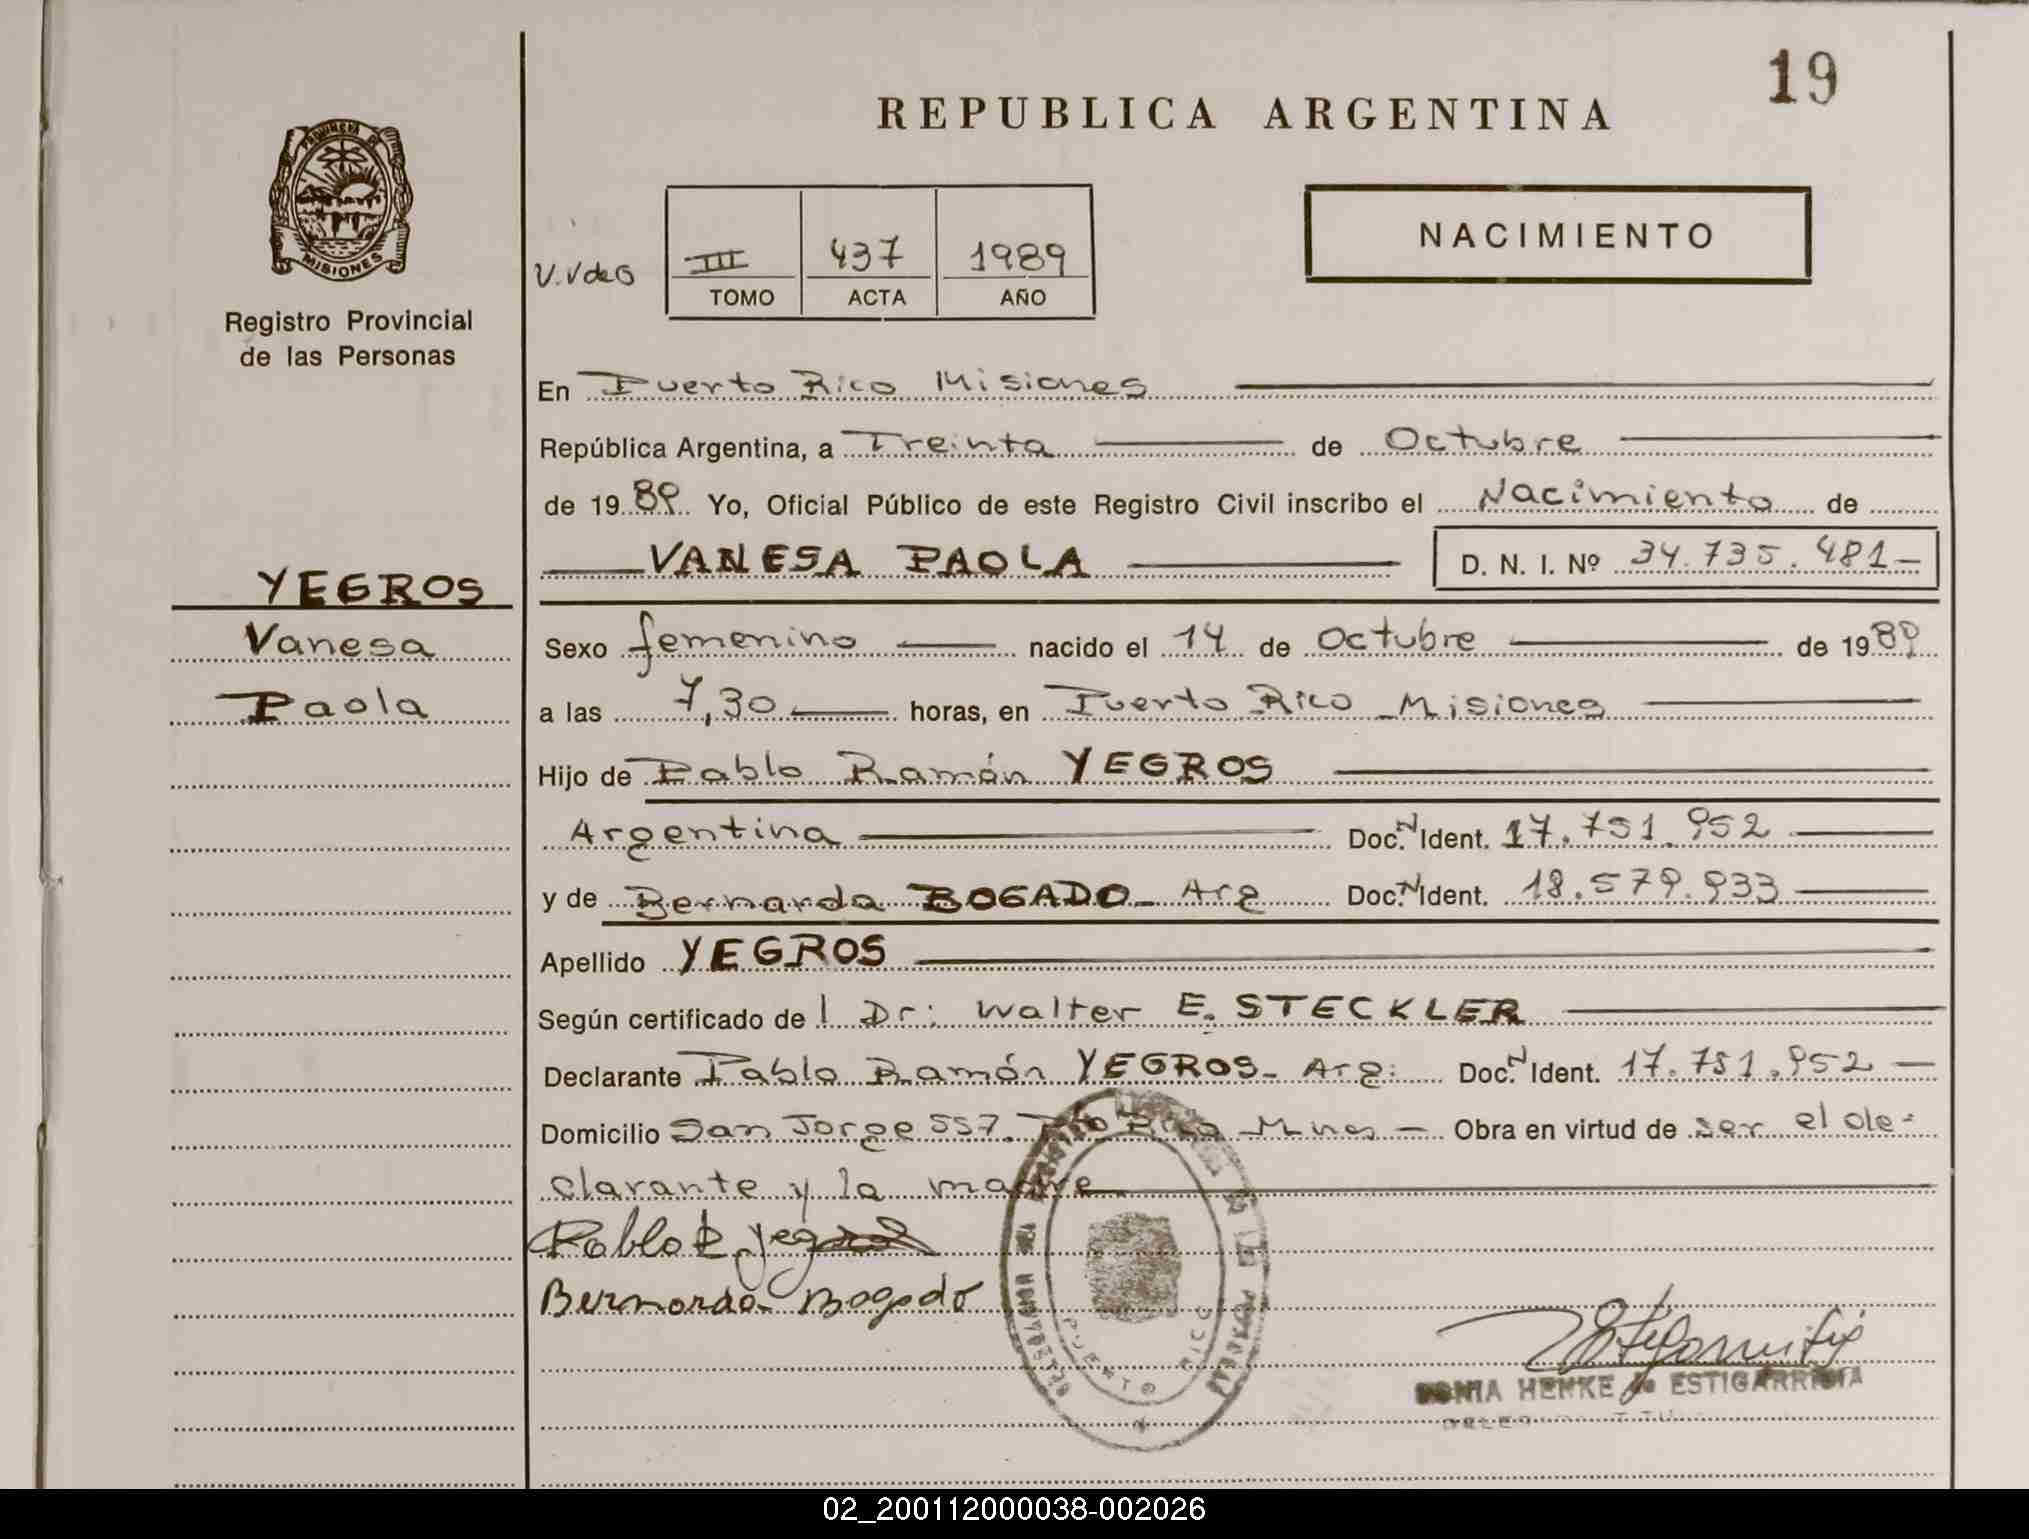 19
REPUBLICA ARGENTINA
PROVINCIA DE MISIONES
Registro Provincial
de las Personas
V.V de O
III 437 1989
TOMO ACTA AÑO
NACIMIENTO
En Puerto Rico Misiones
República Argentina, a Treinta de Octubre
de 1989 Yo, Oficial Público de este Registro Civil inscribo el Nacimiento de
VANESA PAOLA D. N. I. Nº 34.735.481-
YEGROS
Vanesa
Paola
Sexo femenino nacido el 14 de Octubre de 1989
a las 7,30 horas, en Puerto Rico - Misiones
Hijo de Pablo Ramón YEGROS
Argentina Doc. N Ident. 17.751.952
y de Bernarda BOGADO - Arg Doc. N Ident. 18.579.933
Apellido YEGROS
Según certificado de l Dr: Walter E. STECKLER
Declarante Pablo Ramón YEGROS - Arg. Doc. N Ident. 17.751.952
Domicilio San Jorge 557. Pto Rico - Mnes - Obra en virtud de ser el de-
clarante y la madre
Pablo R. Yegros
Bernarda Bogado
PUERTO RICO
SONIA HENKE de ESTIGARRIBIA
02_200112000038-002026